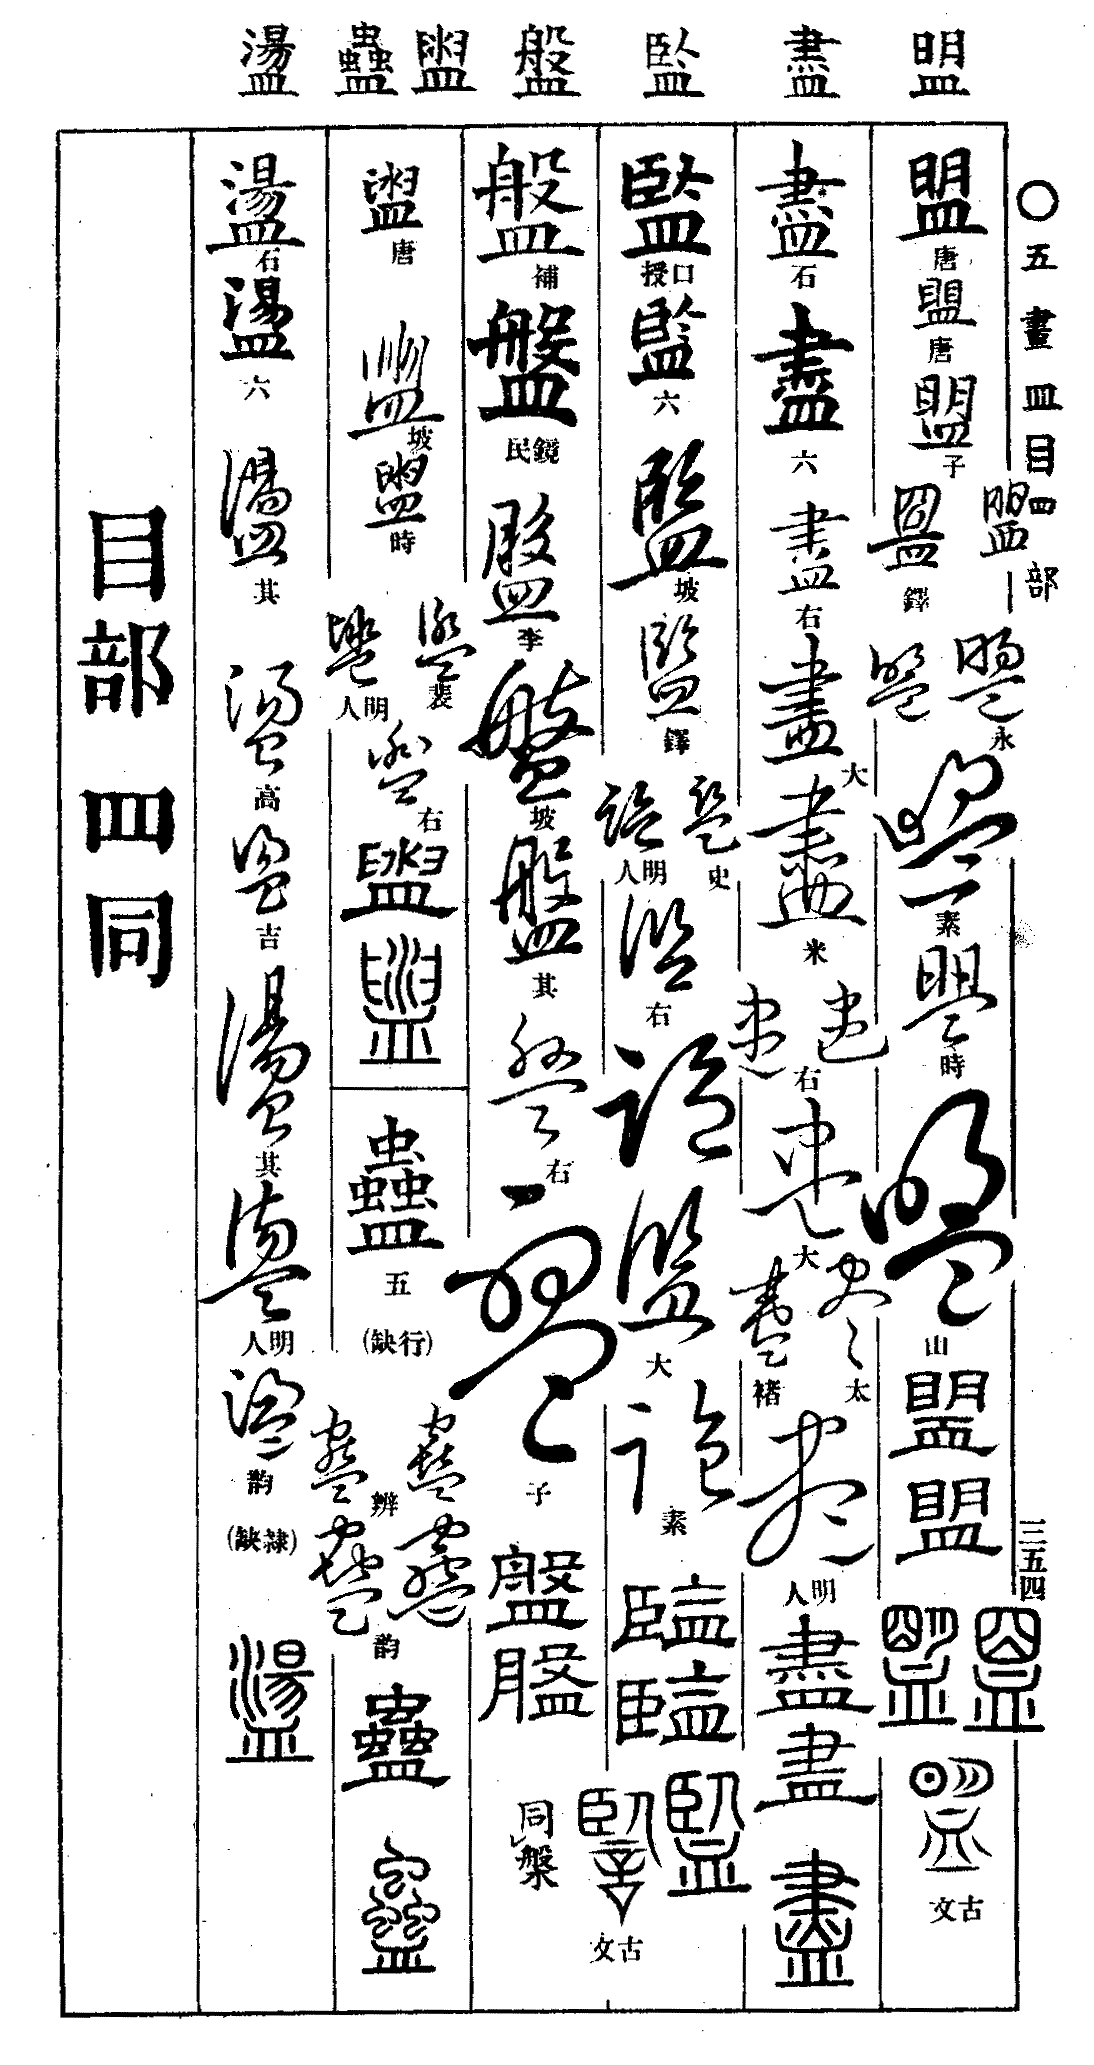 盟 盡 監 盤 盥 蠱 盪
〇五畫 皿目四部
三五四
盟
唐
盟
唐
盟
子
鐸
永
素
時
山
盟
盟
古文
盡
石
盡
六
盡
右
盡
大
盡
米
右
大
太
褚
明人
盡
盡
盡
監
口授
監
六
監
坡
監
鐸
史
明人
右
大
素
監
監
監
古文
盤
補
盤
鏡民
盤
李
盤
坡
盤
其
右
子
盤
盤
同槃
盥
唐
盥
坡
盥
時
裴
明人
右
盥
盥
蠱
五
(行缺)
辨
韵
蠱
蠱
盪
石
盪
六
盪
其
盪
高
盪
吉
盪
其
盪
明人
盪
韵
(隸缺)
盪
目部四同